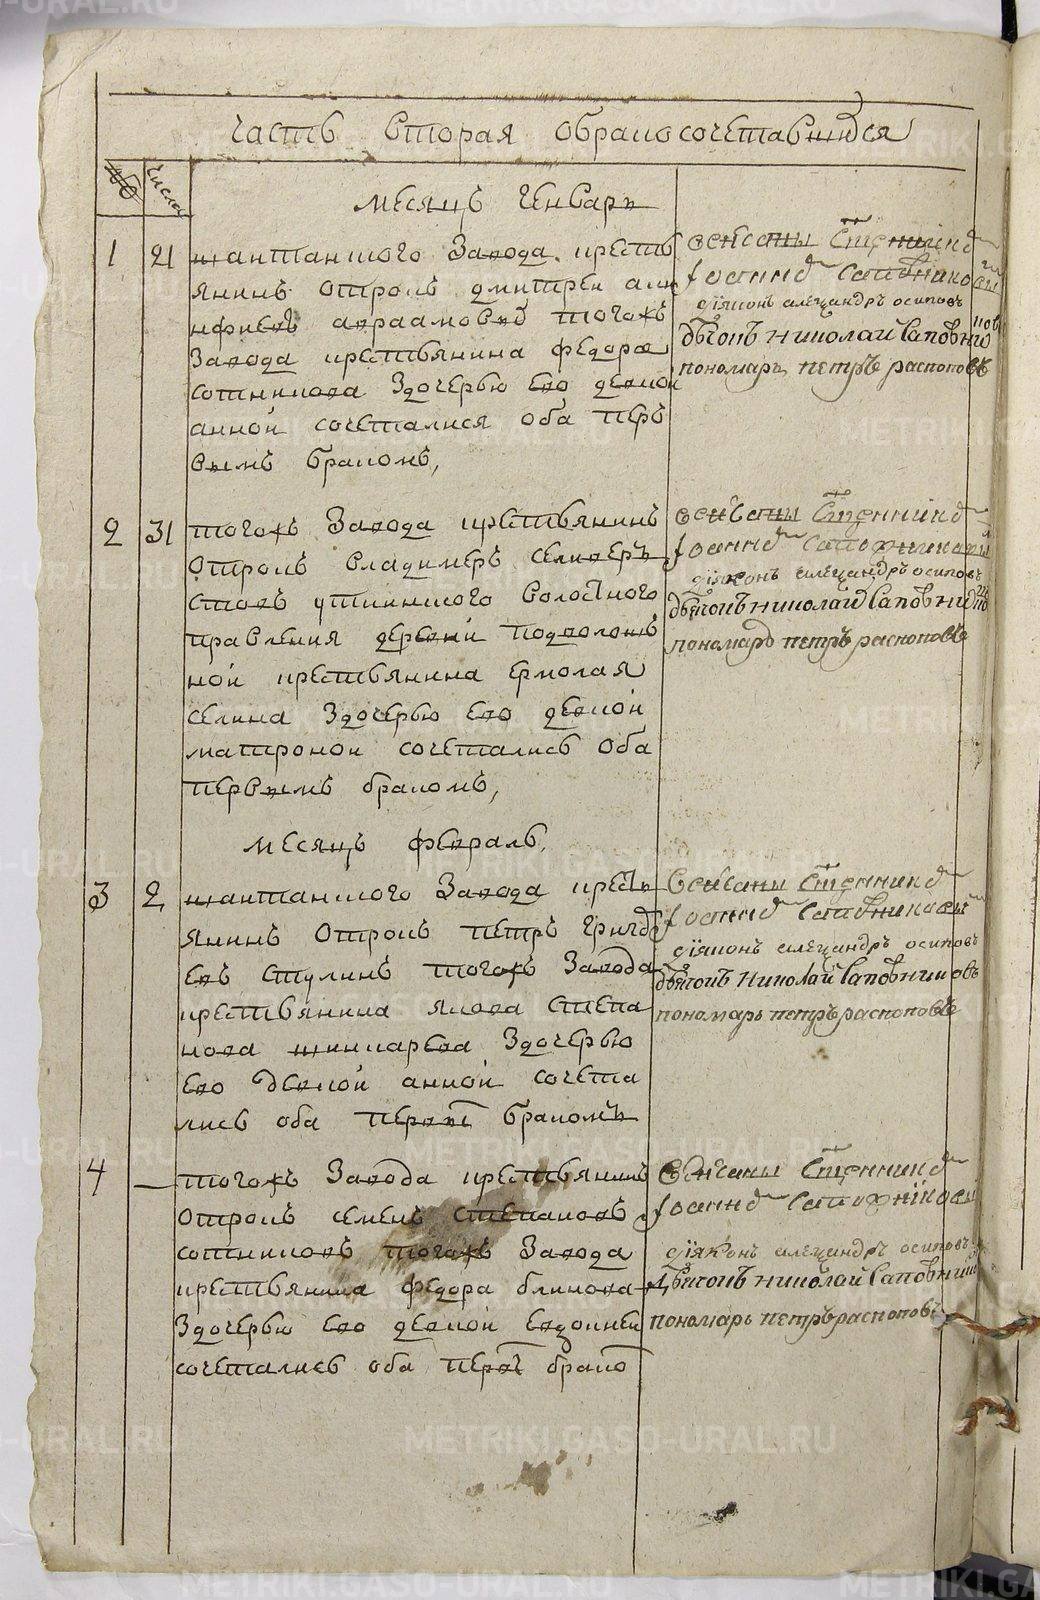 Часть вторая обракосочетавшихся
№
числа
месяцъ генварь
1
21
шайтанского завода крестъ
янинъ отрокъ дмитреи
авраамовъ тогожъ
завода крестьянина федора
сотникова здочерью ево девкои
анной сочеталися оба пер
вымъ бракомъ,
венчаны священникъ
Iоаннъ сапожниковъ
дiяконъ александръ осиповъ
дьячокъ николай сапожни
ковъ
пономарь петръ распоповъ
2
31
тогожъ завода крестьянинъ
отрокъ владимеръ селиверь
стовъ уткинского волостного
правления деревни подволош
ной крестьянина ермолая
селина здочерью ево девкой
матроной сочетались оба
первымъ бракомъ,
венчаны священникъ
Iоаннъ сапожниковы
дiяконъ александръ осиповъ
дьячокъ николай сапожни
пономарь петръ распоповъ
месяцъ февраль,
3
2
шайтанского завода кресть
янинъ отрокъ петръ григорь
евъ ступинъ тогожъ завода
крестьянина якова степа
нова шинкарева здочерью
ево девкой анной сочета
лись оба первы бракомъ
венчаны священникъ
Iоаннъ сапожниковы
дiяконъ александръ осиповъ
дьячокъ николай сапожниковъ
пономарь петръ распоповъ
4
—
тогожъ завода крестьянинъ
отрокъ семенъ степановъ
сотниковъ тогожъ завода
крестьянина федора блинова
здочерью ево девкой евдокией
сочеталисъ оба первы брако
венчаны священникъ
Iоаннъ сапожнiковы
дiяконъ александръ осиповъ
дьячокъ николай сапожни
пономарь петръ распоповъ
METRIKI.GASO-URAL.RU